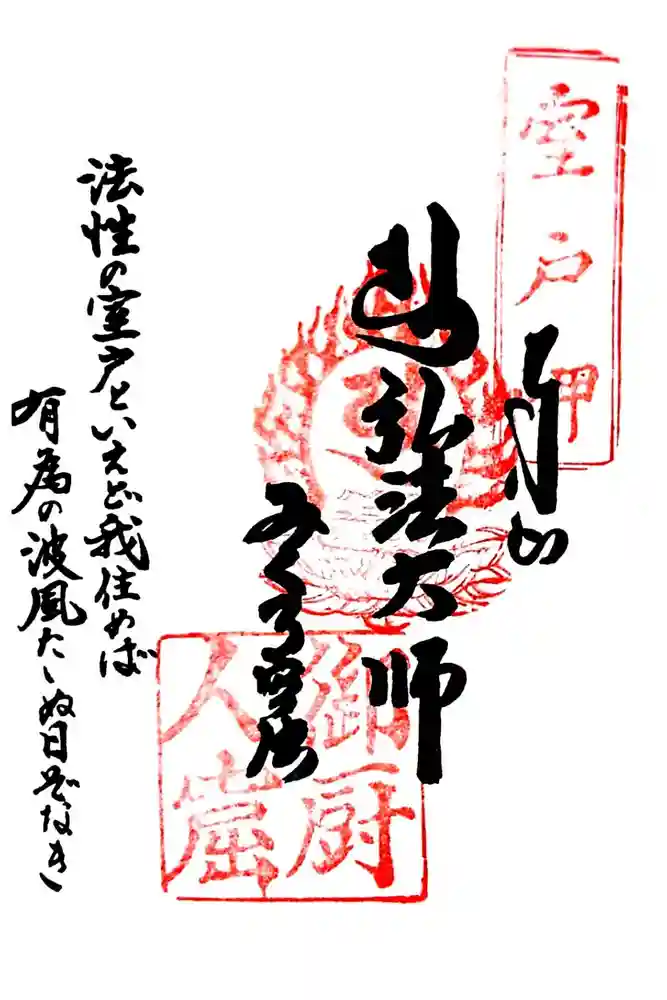 室戸岬
弘法大師
御厨
人崫
法性の室戸といえど我住めば
有為の波風たゝぬ日ぞなき